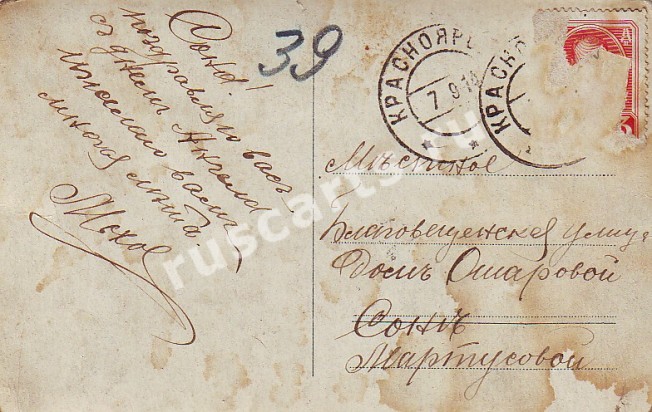 Соня!
поздравляю васъ
съ днемъ Ангела
и желаю вамъ
многая лѣта.
39
КРАСНОЯРС
7 9 14
КРАСНО
Мѣстное
Благовещенская улица
Домъ Омаровой
Сонѣ
Мартусовой
ruscarts.ru